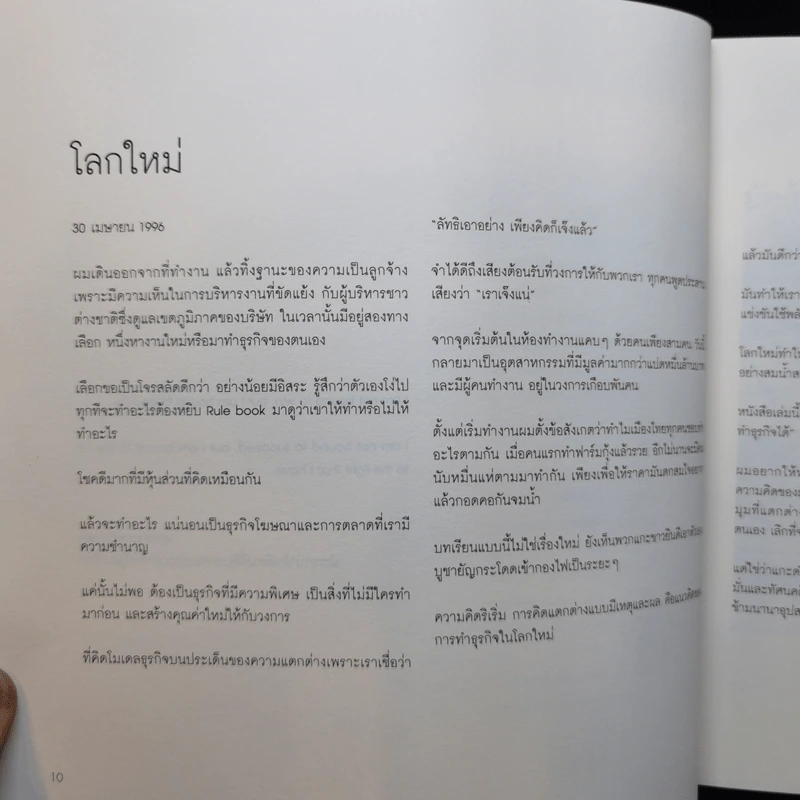 โลกใหม่
30 เมษายน 1996
ผมเดินออกจากที่ทำงาน แล้วทิ้งฐานะของความเป็นลูกจ้าง
เพราะมีความเห็นในการบริหารงานที่ขัดแย้ง กับผู้บริหารชาว
ต่างชาติซึ่งดูแลเขตภูมิภาคของบริษัท ในเวลานั้นมีอยู่สองทาง
เลือก หนึ่งหางานใหม่หรือมาทำธุรกิจของตนเอง
เลือกขอเป็นโจรสลัดดีกว่า อย่างน้อยมีอิสระ รู้สึกว่าตัวเองโง่ไป
ทุกทีจะทำอะไรต้องหยิบ Rule book มาดูว่าเขาให้ทำหรือไม่ให้
ทำอะไร
โชคดีมากที่มีหุ้นส่วนที่คิดเหมือนกัน
แล้วจะทำอะไร แน่นอนเป็นธุรกิจโฆษณาและการตลาดที่เรามี
ความชำนาญ
แค่นั้นไม่พอ ต้องเป็นธุรกิจที่มีความพิเศษ เป็นสิ่งที่ไม่มีใครทำ
มาก่อน และสร้างคุณค่าใหม่ให้กับวงการ
ที่คิดโมเดลธุรกิจบนประเด็นของความแตกต่างเพราะเราเชื่อว่า
10
"ลัทธิเอาอย่าง เพียงคิดก็เจ๊งแล้ว"
จำได้ดีถึงเสียงต้อนรับที่วงการให้กับพวกเรา ทุกคนพูดประสาน
เสียงว่า "เราเจ๊งแน่"
จากจุดเริ่มต้นในห้องทำงานแคบๆ ด้วยคนเพียงสามคน วันนี้
กลายมาเป็นอุตสาหกรรมที่มีมูลค่ามากกว่าแปดหมื่นล้านบาท
และมีผู้คนทำงาน อยู่ในวงการเกือบพันคน
ตั้งแต่เริ่มทำงานผมตั้งข้อสังเกตว่าทำไมเมืองไทยทุกคนชอบทำ
อะไรตามกัน เมื่อคนแรกทำฟาร์มกุ้งแล้วรวย อีกไม่นานจะมีคน
นับหมื่นแห่ตามมาทำกัน เพียงเพื่อให้ราคามันตกสมใจอยาก
แล้วกอดคอกันจมน้ำ
บทเรียนแบบนี้ไม่ใช่เรื่องใหม่ ยังเห็นพวกแกะขาวยินดีเอาตัวเอง
บูชายัญกระโดดเข้ากองไฟเป็นระยะๆ
ความคิดริเริ่ม การคิดแตกต่างแบบมีเหตุและผล คือแนวคิดของ
การทำธุรกิจในโลกใหม่
แล้วมันดีกว่า
มันทำให้เรา
แข่งขันใช้พลั
โลกใหม่ทำให้
อย่างสมน้ำส
หนังสือเล่มนี้
ทำธุรกิจได้"
ผมอยากให้
ความคิดของ
มุมที่แตกต่าง
ตนเอง เลิกที่จ
แต่ใช่ว่าแกะดำ
มั่นและทัศนคติ
ข้ามนานาอุปส